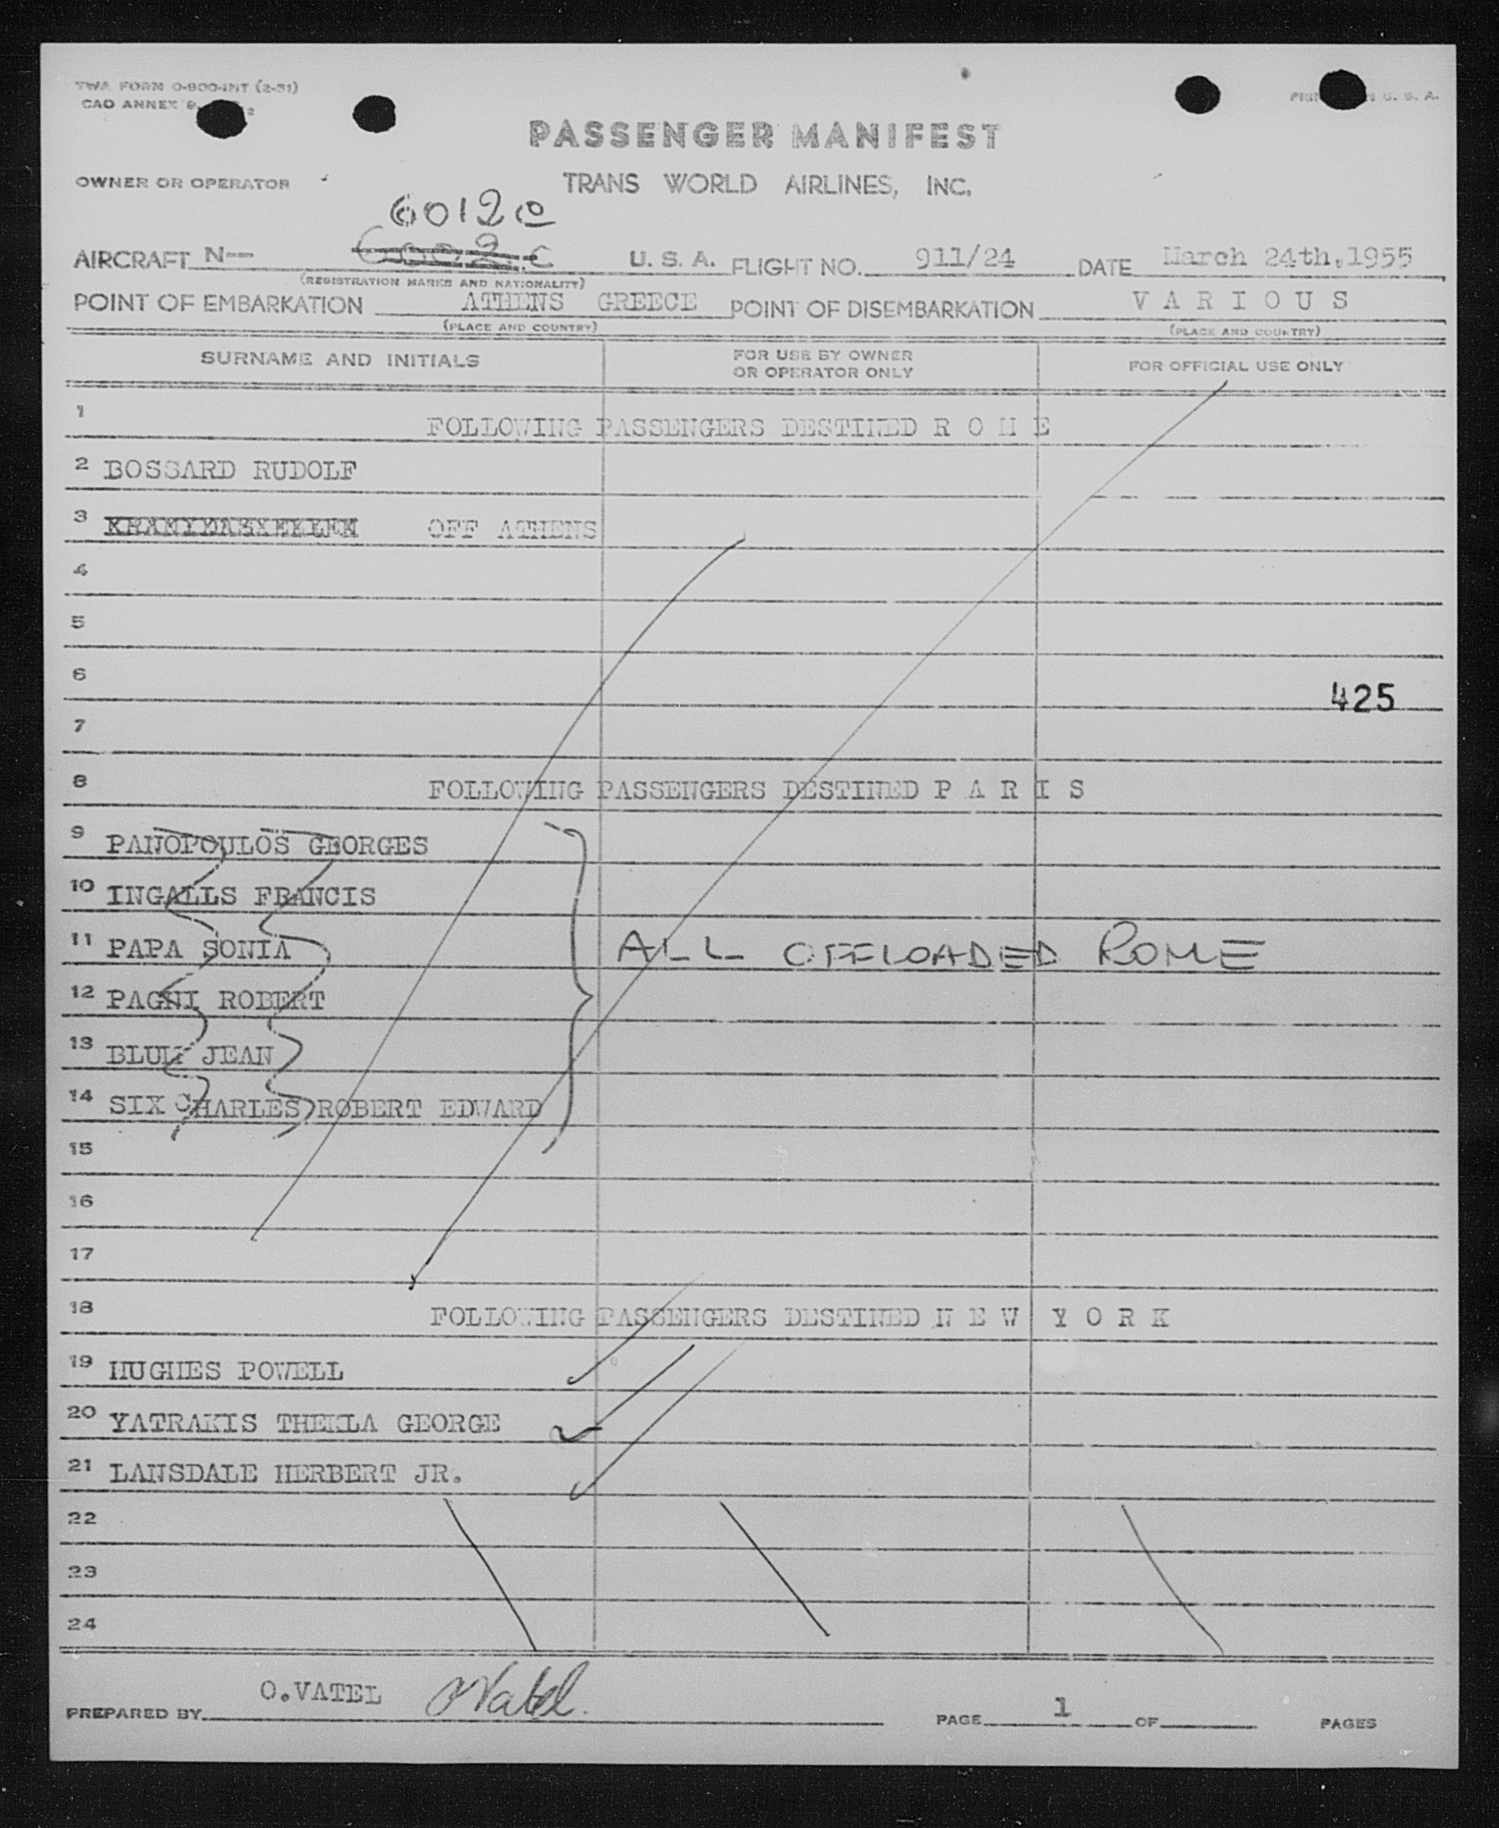 TWA FORM O-800-INT (2-51)
CAO ANNEX 9,
U. S. A.
PASSENGER MANIFEST
OWNER OR OPERATOR TRANS WORLD AIRLINES, INC.
6012c
AIRCRAFT N-- U. S. A. FLIGHT NO. 911/24 DATE March 24th,1955
(REGISTRATION MARKS AND NATIONALITY)
POINT OF EMBARKATION ATHENS GREECE POINT OF DISEMBARKATION V A R I O U S
(PLACE AND COUNTRY) (PLACE AND COUNTRY)
SURNAME AND INITIALS FOR USE BY OWNER OR OPERATOR ONLY FOR OFFICIAL USE ONLY
1 FOLLOWING PASSENGERS DESTINED R O M E
2 BOSSARD RUDOLF
3 OFF ATHENS
4
5
6
425
7
8 FOLLOWING PASSENGERS DESTINED P A R I S
9 PANOPOULOS GEORGES
10 INGALLS FRANCIS
11 PAPA SONIA ALL OFFLOADED ROME
12 PAGNI ROBERT
13 BLUM JEAN
14 SIX CHARLES ROBERT EDWARD
15
16
17
18 FOLLOWING PASSENGERS DESTINED N E W Y O R K
19 HUGHES POWELL
20 YATRAKIS THEKLA GEORGE
21 LANSDALE HERBERT JR.
22
23
24
PREPARED BY O.VATEL OVatel. PAGE 1 OF PAGES